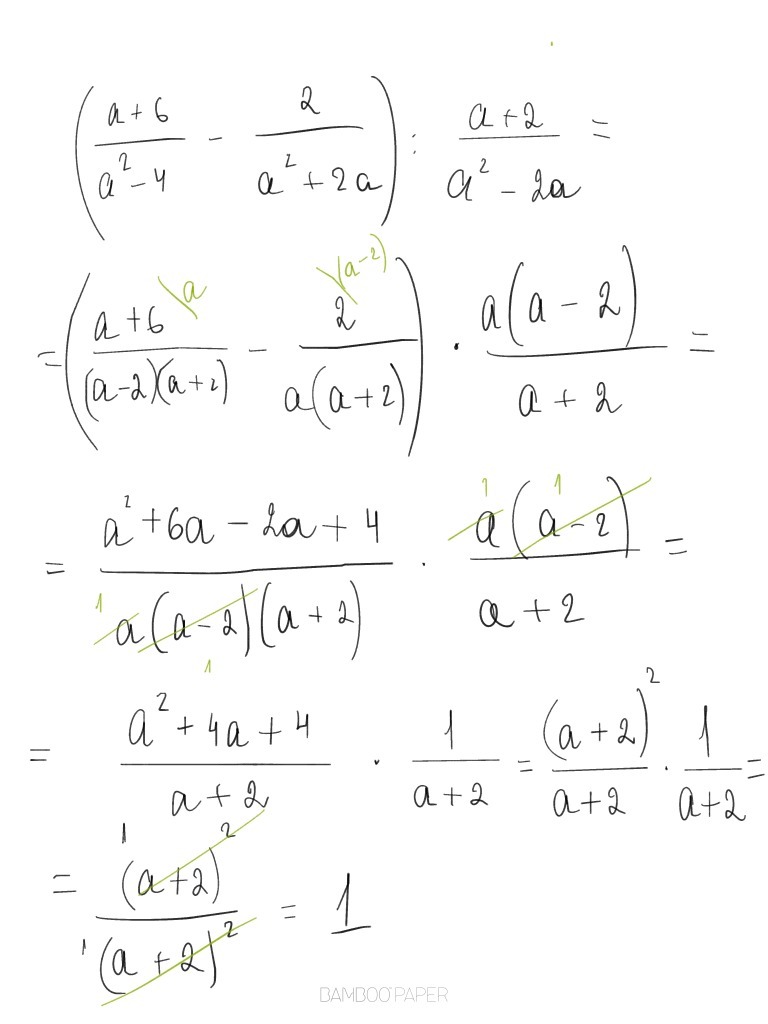 ( (a+6)/(a²-4) - 2/(a²+2a) ) : (a+2)/(a²-2a) =
= ( (a+6)/((a-2)(a+2)) \a - 2/(a(a+2)) \(a-2) ) · a(a-2)/(a+2) =
= (a²+6a-2a+4)/(a(a-2)(a+2)) 1 1 · a(a-2)/(a+2) 1 1 =
= (a²+4a+4)/(a+2) · 1/(a+2) = (a+2)²/(a+2) · 1/(a+2) =
= (a+2)²/(a+2)² 1 1 = 1
BAMBOO PAPER